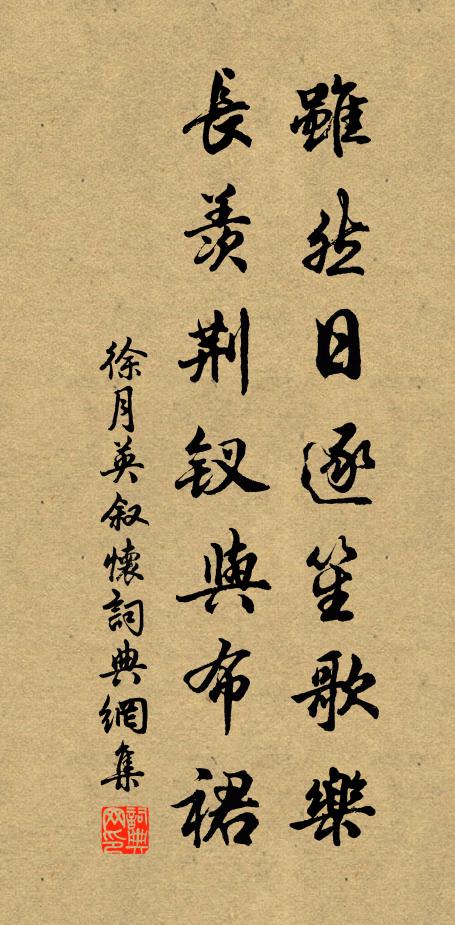 雖然日逐笙歌樂
長羨荆钗與布裙
徐月英叙懷詞典網集
詞典網印